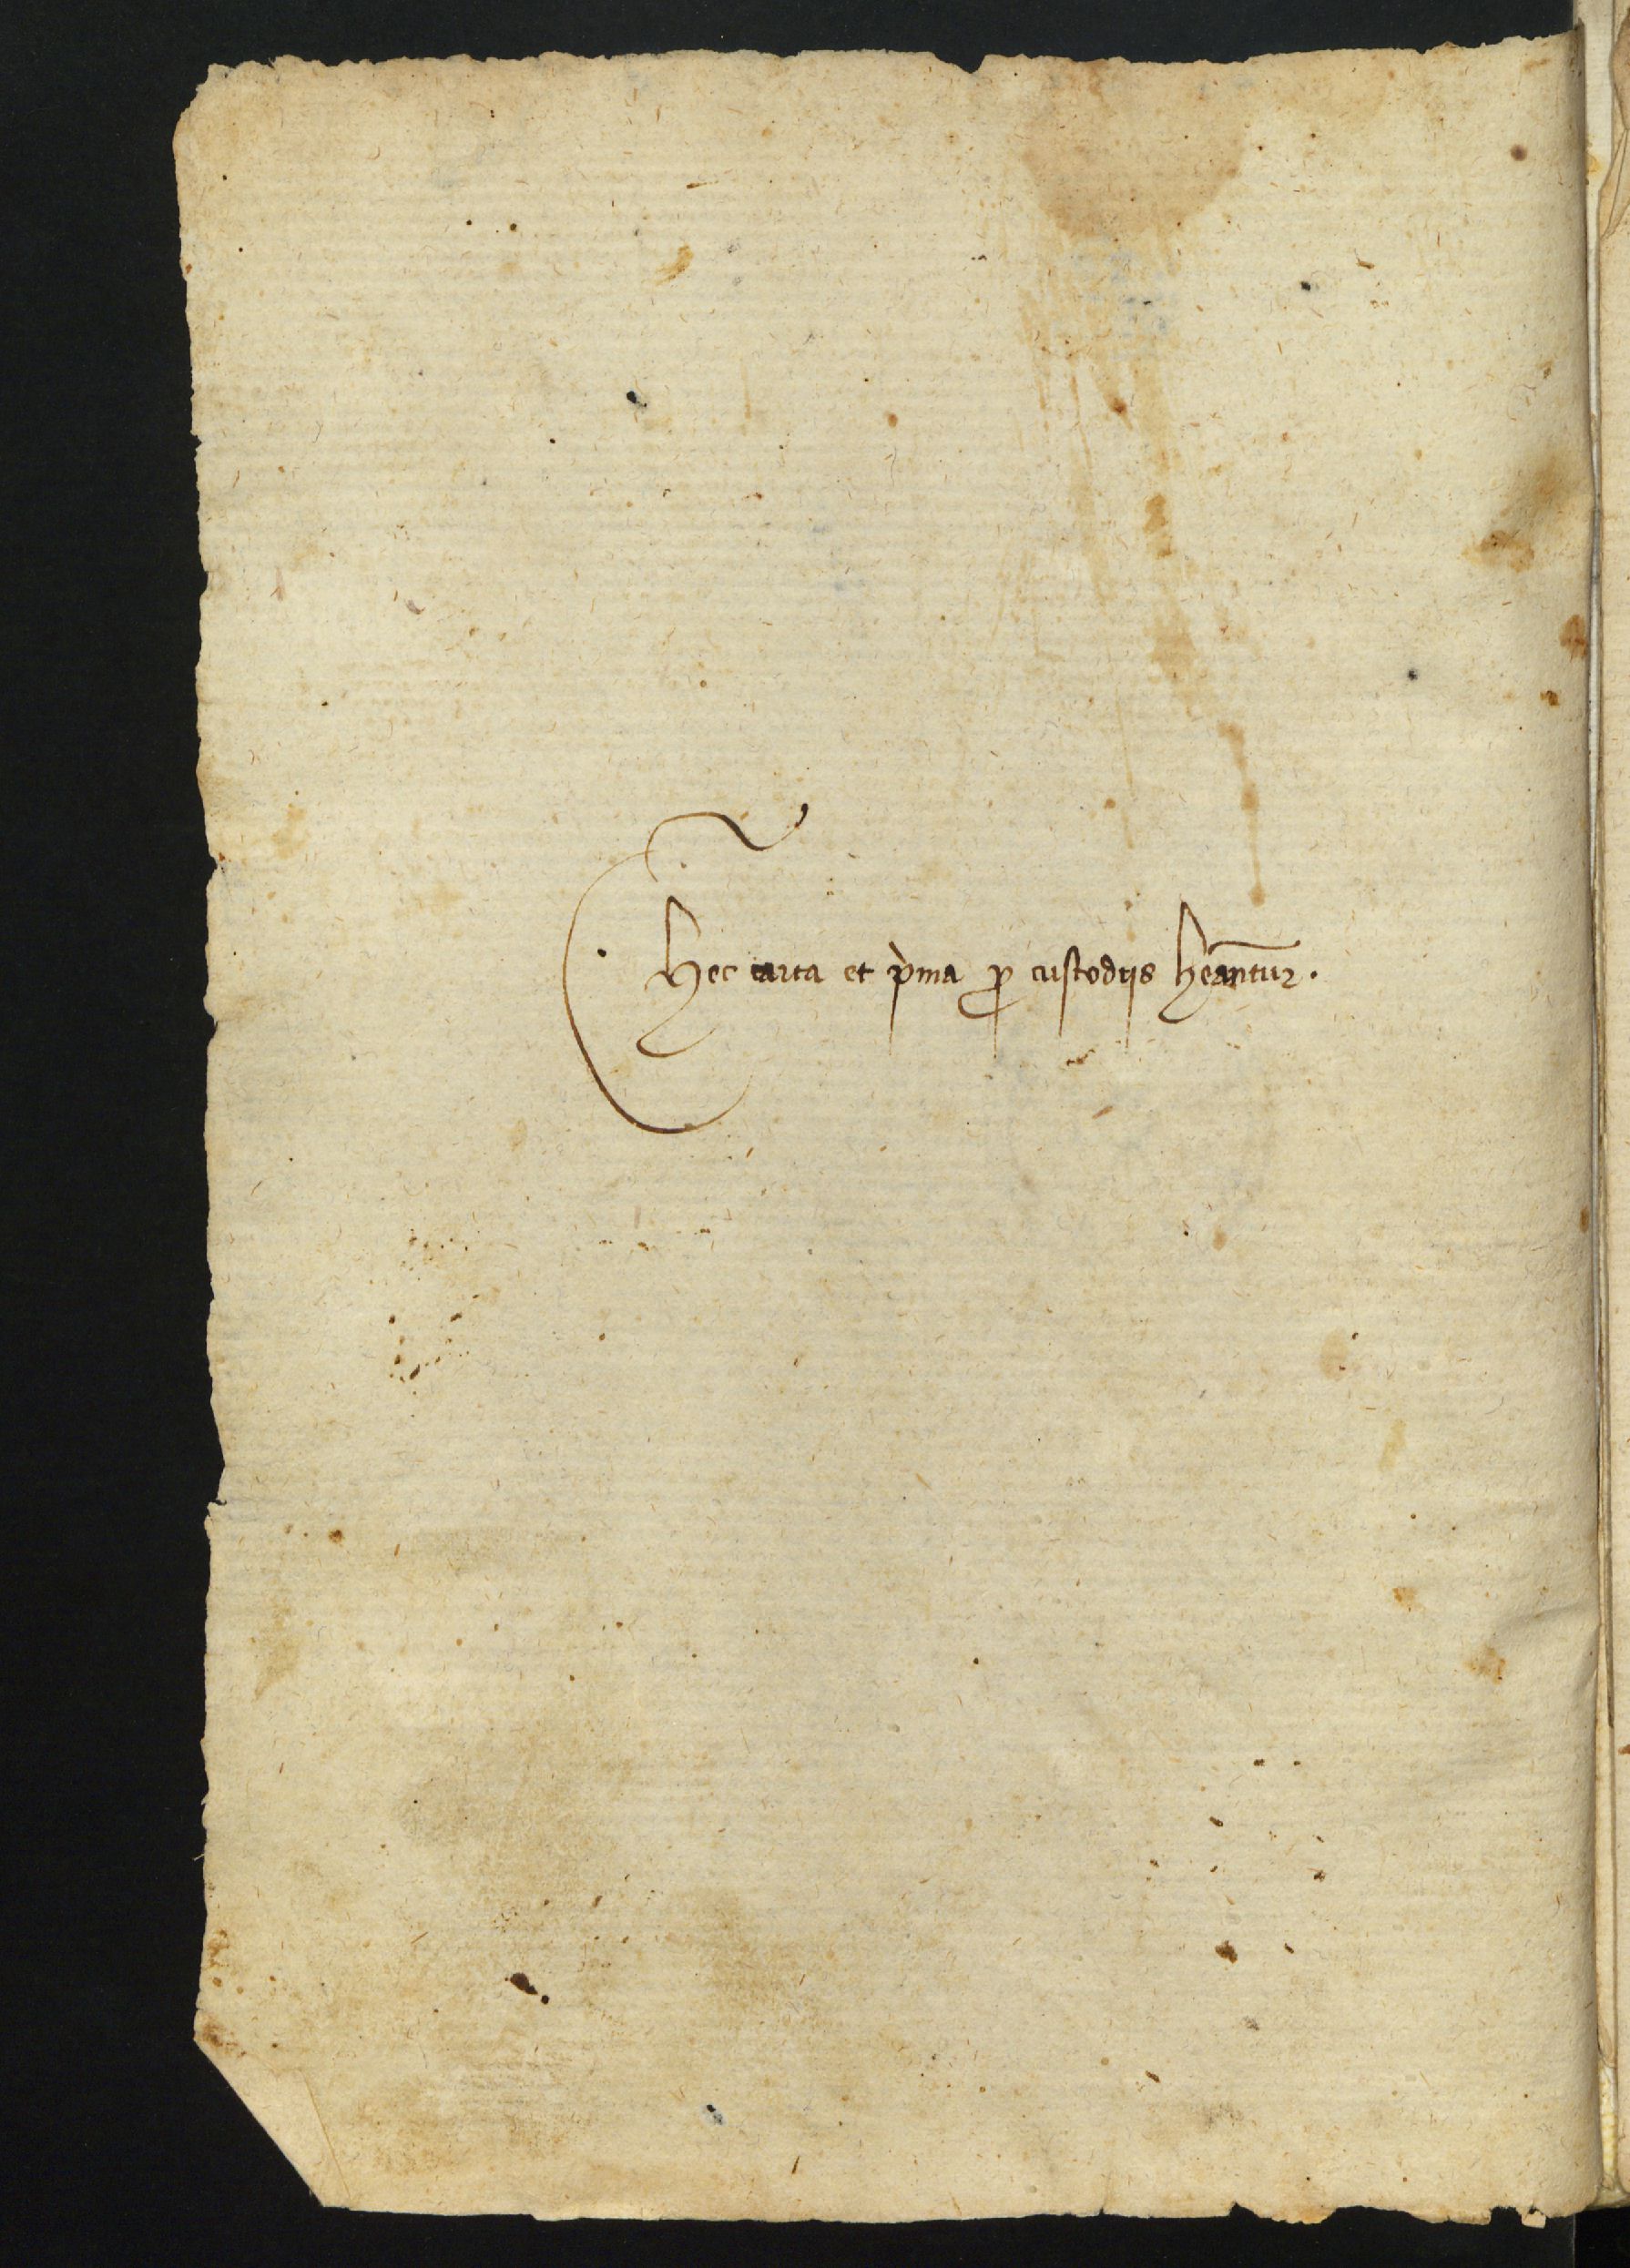 Hec carta et p̀ma ꝓ custodijs hẽantur.